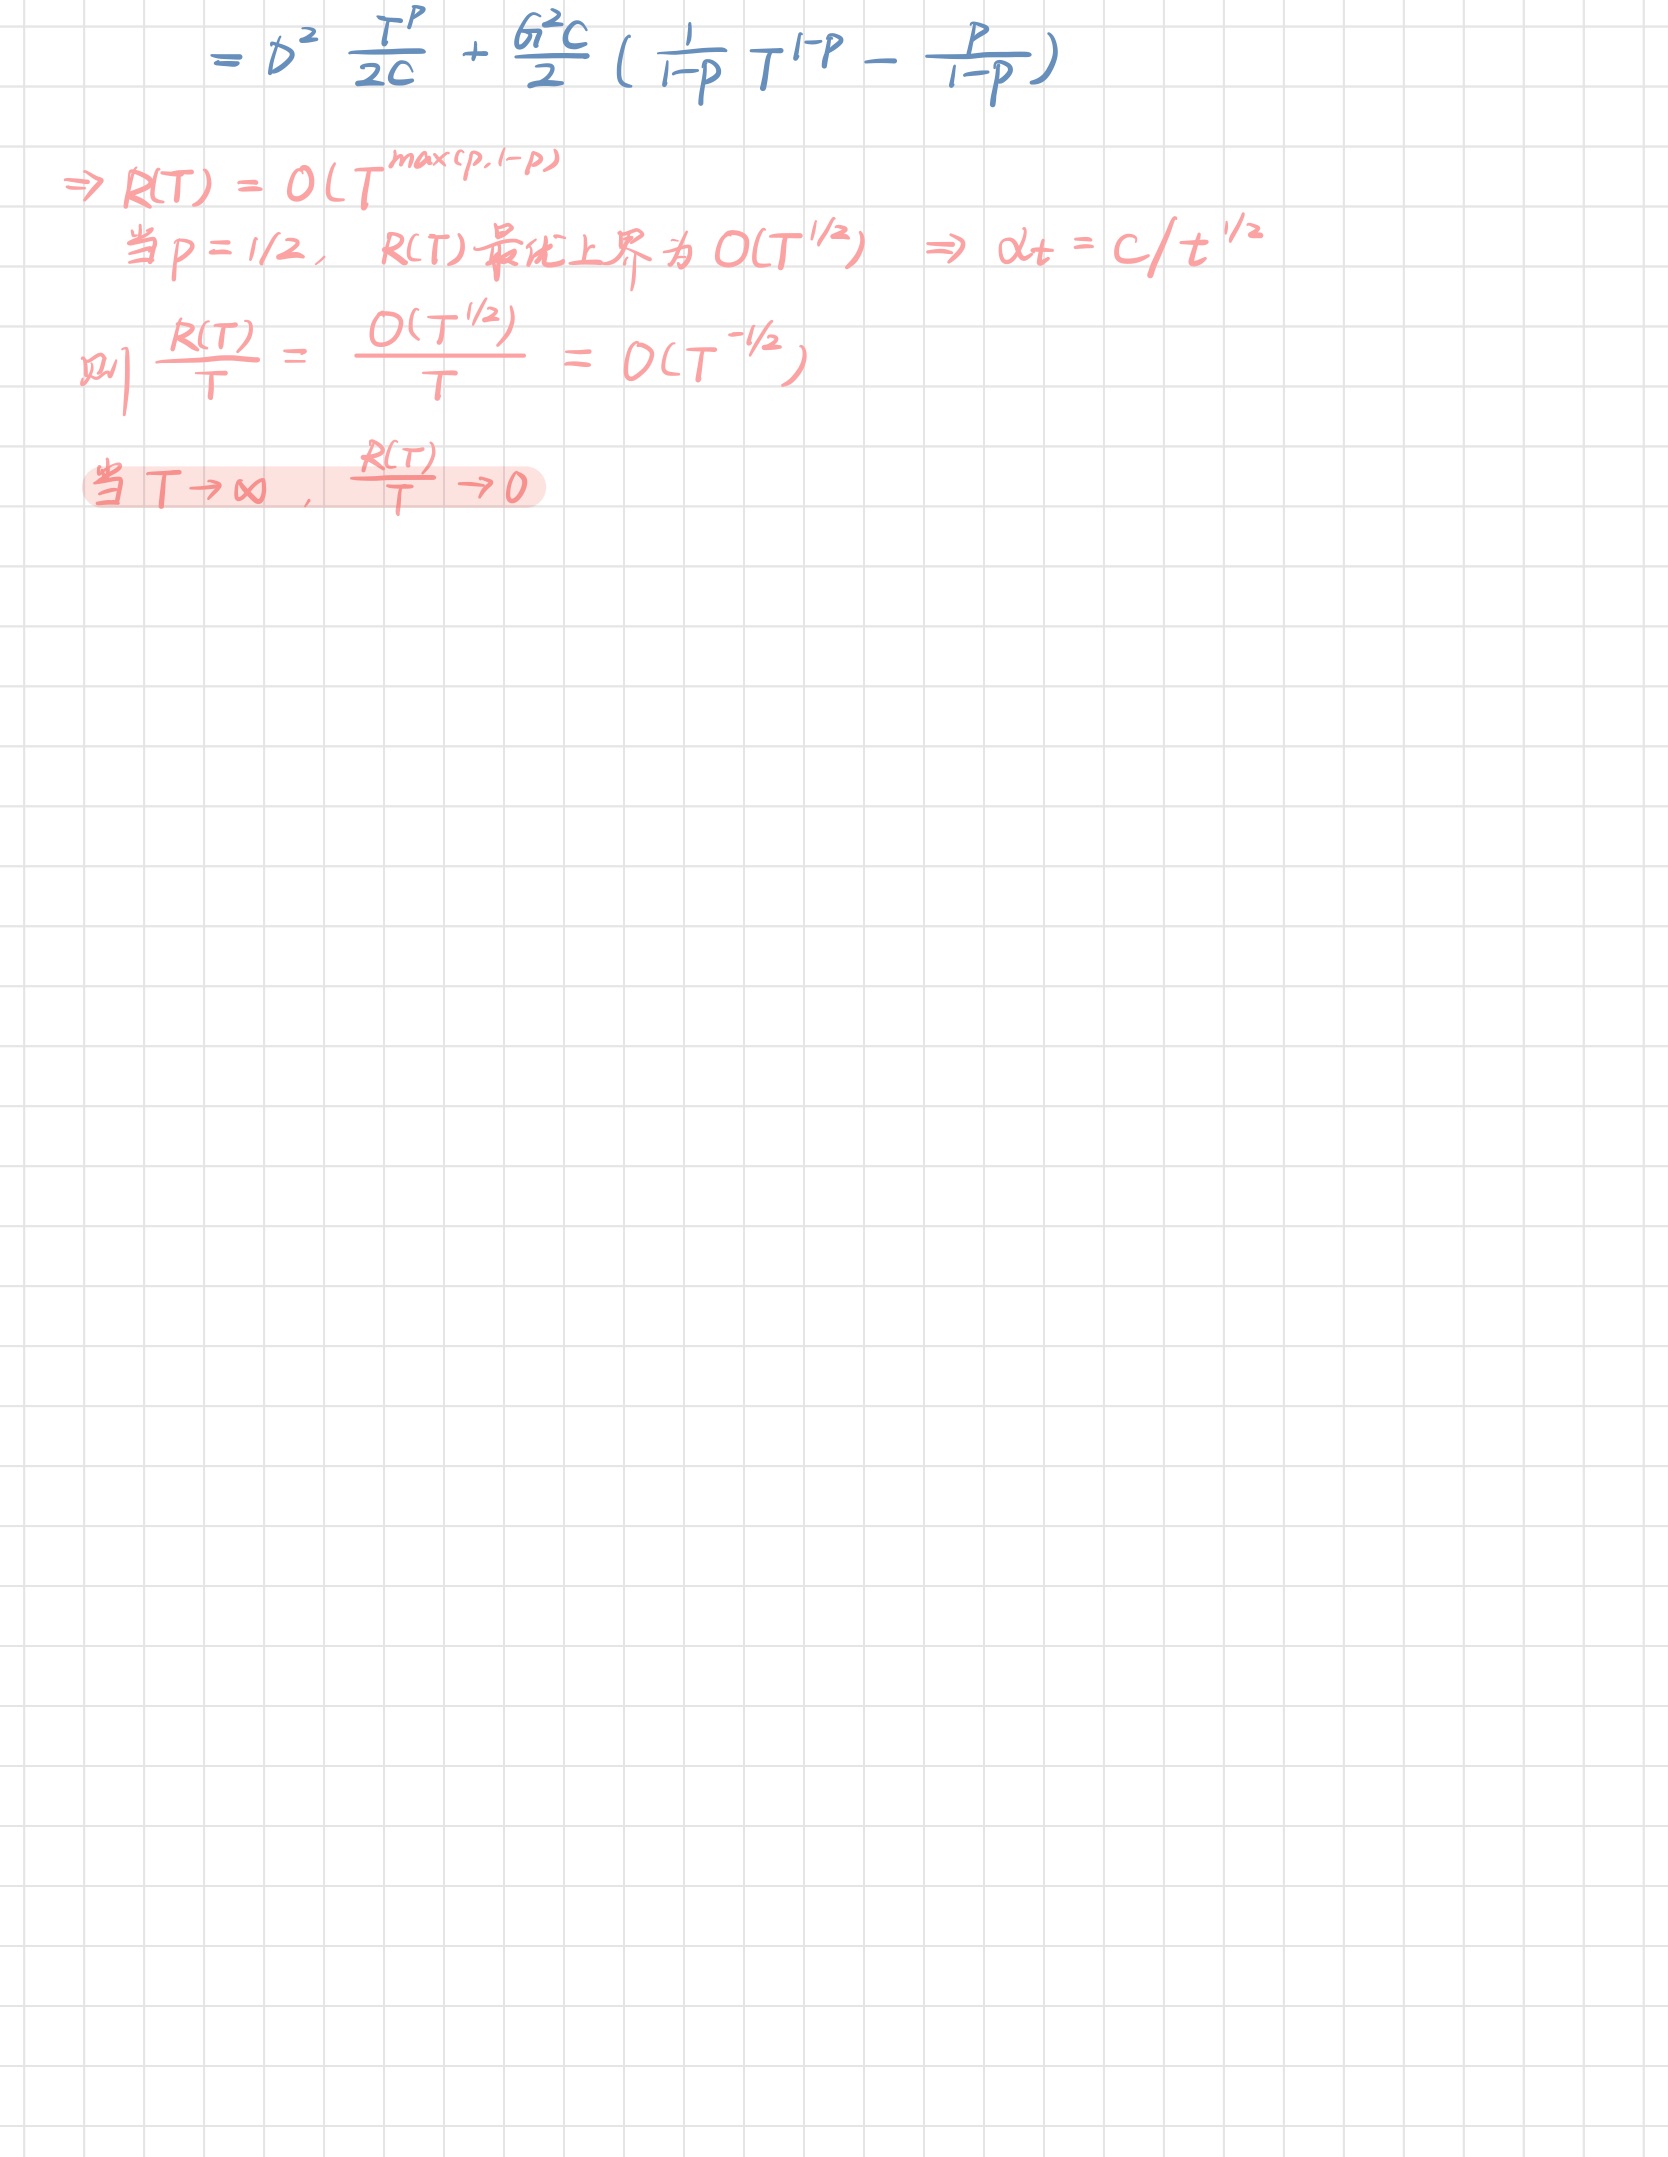 = D² T^P/2C + G²C/2 ( 1/1-P T^{1-P} - P/1-P )
⇒ R(T) = O(T^{max(p,1-p)}
当 p = 1/2, R(T) 最优上界为 O(T^{1/2}) ⇒ αt = C/t^{1/2}
则 R(T)/T = O(T^{1/2})/T = O(T^{-1/2})
当 T→∞, R(T)/T → 0